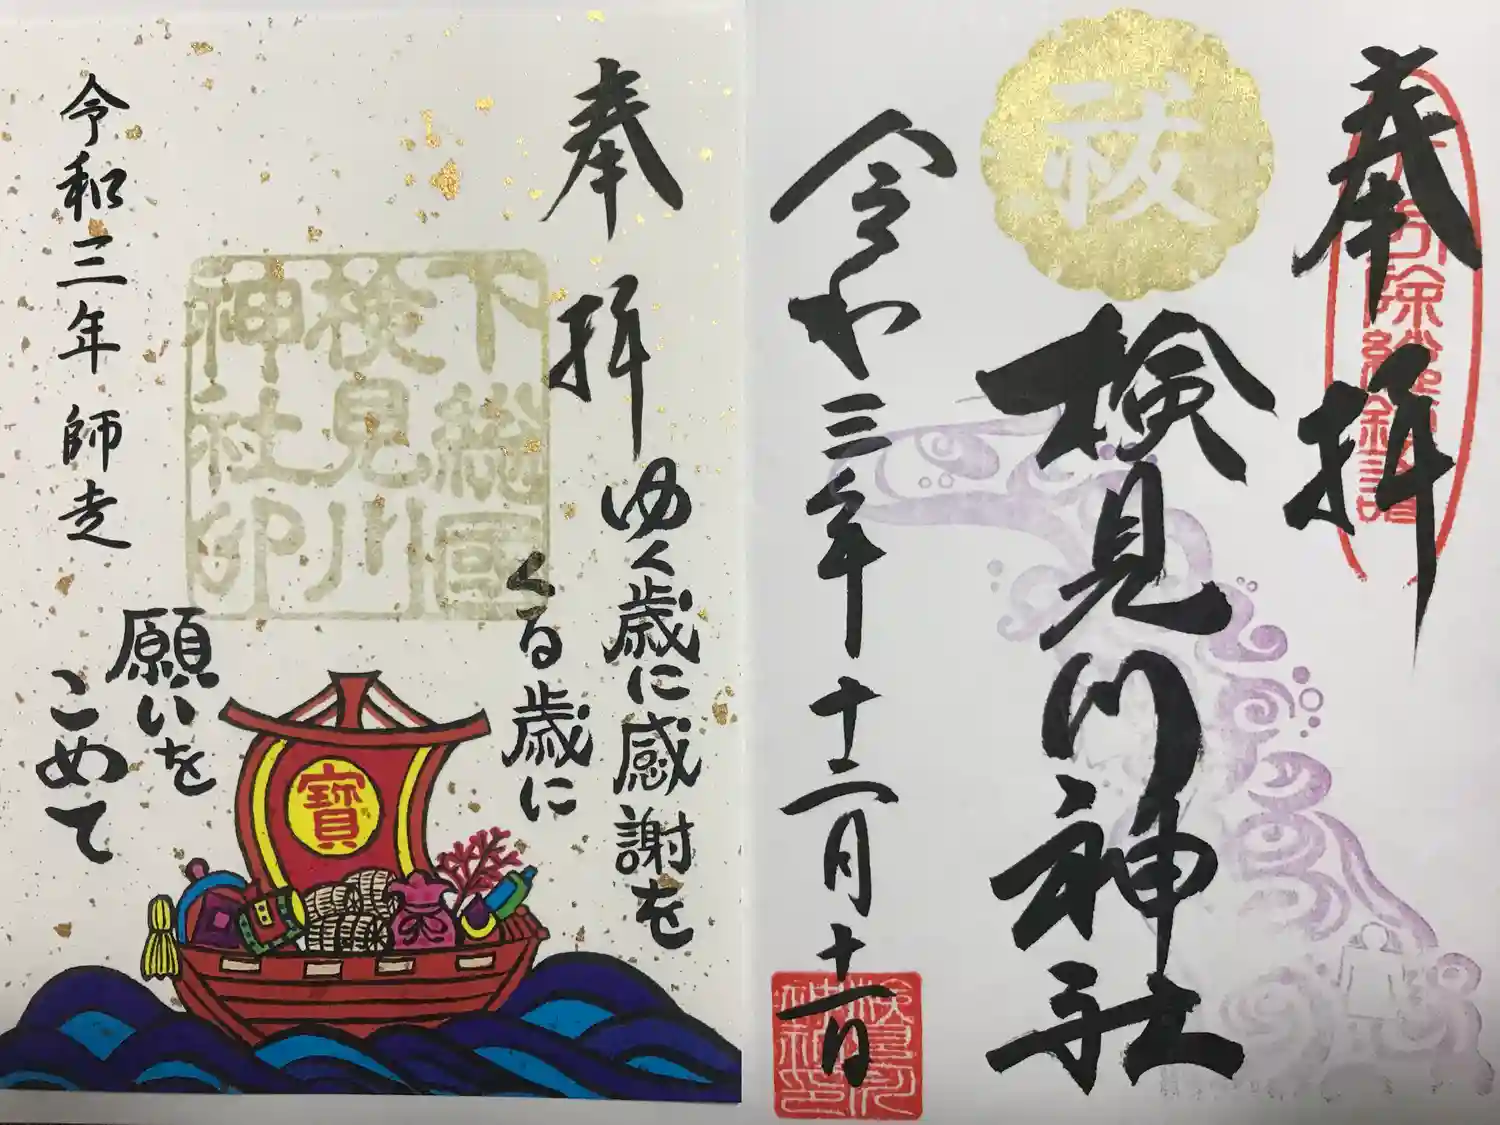 奉拝
検見川神社
祓
令和三年十二月十一日
検見川
神社印
奉拝
ゆく歳に感謝を
くる歳に
願いを
こめて
下総国
検見川
神社印
寶
令和三年 師走